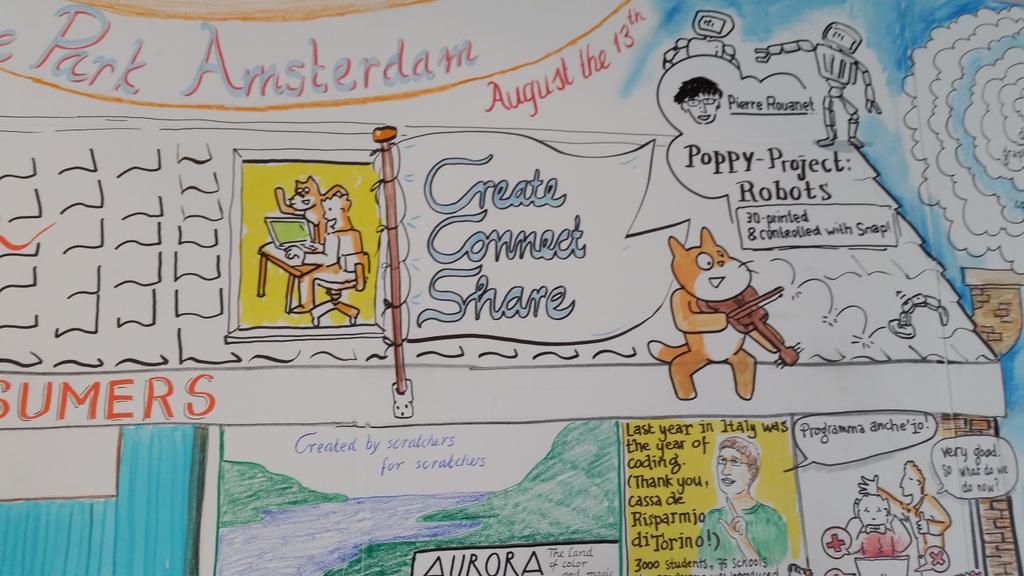 e Park Amsterdam
August the 13th
Pierre Rouanet
Poppy-Project:
Robots
3D-printed
& controlled with Snap!
Create
Connect
Share
SUMERS
Created by scratchers
for scratchers
AURORA
The Land
of color
and magic
Last year in Italy was
the year of
coding.
(Thank you,
cassa de
Risparmio
di Torino!)
3000 students, 75 schools
Programma anche'io!
very good.
So what do we
do now?